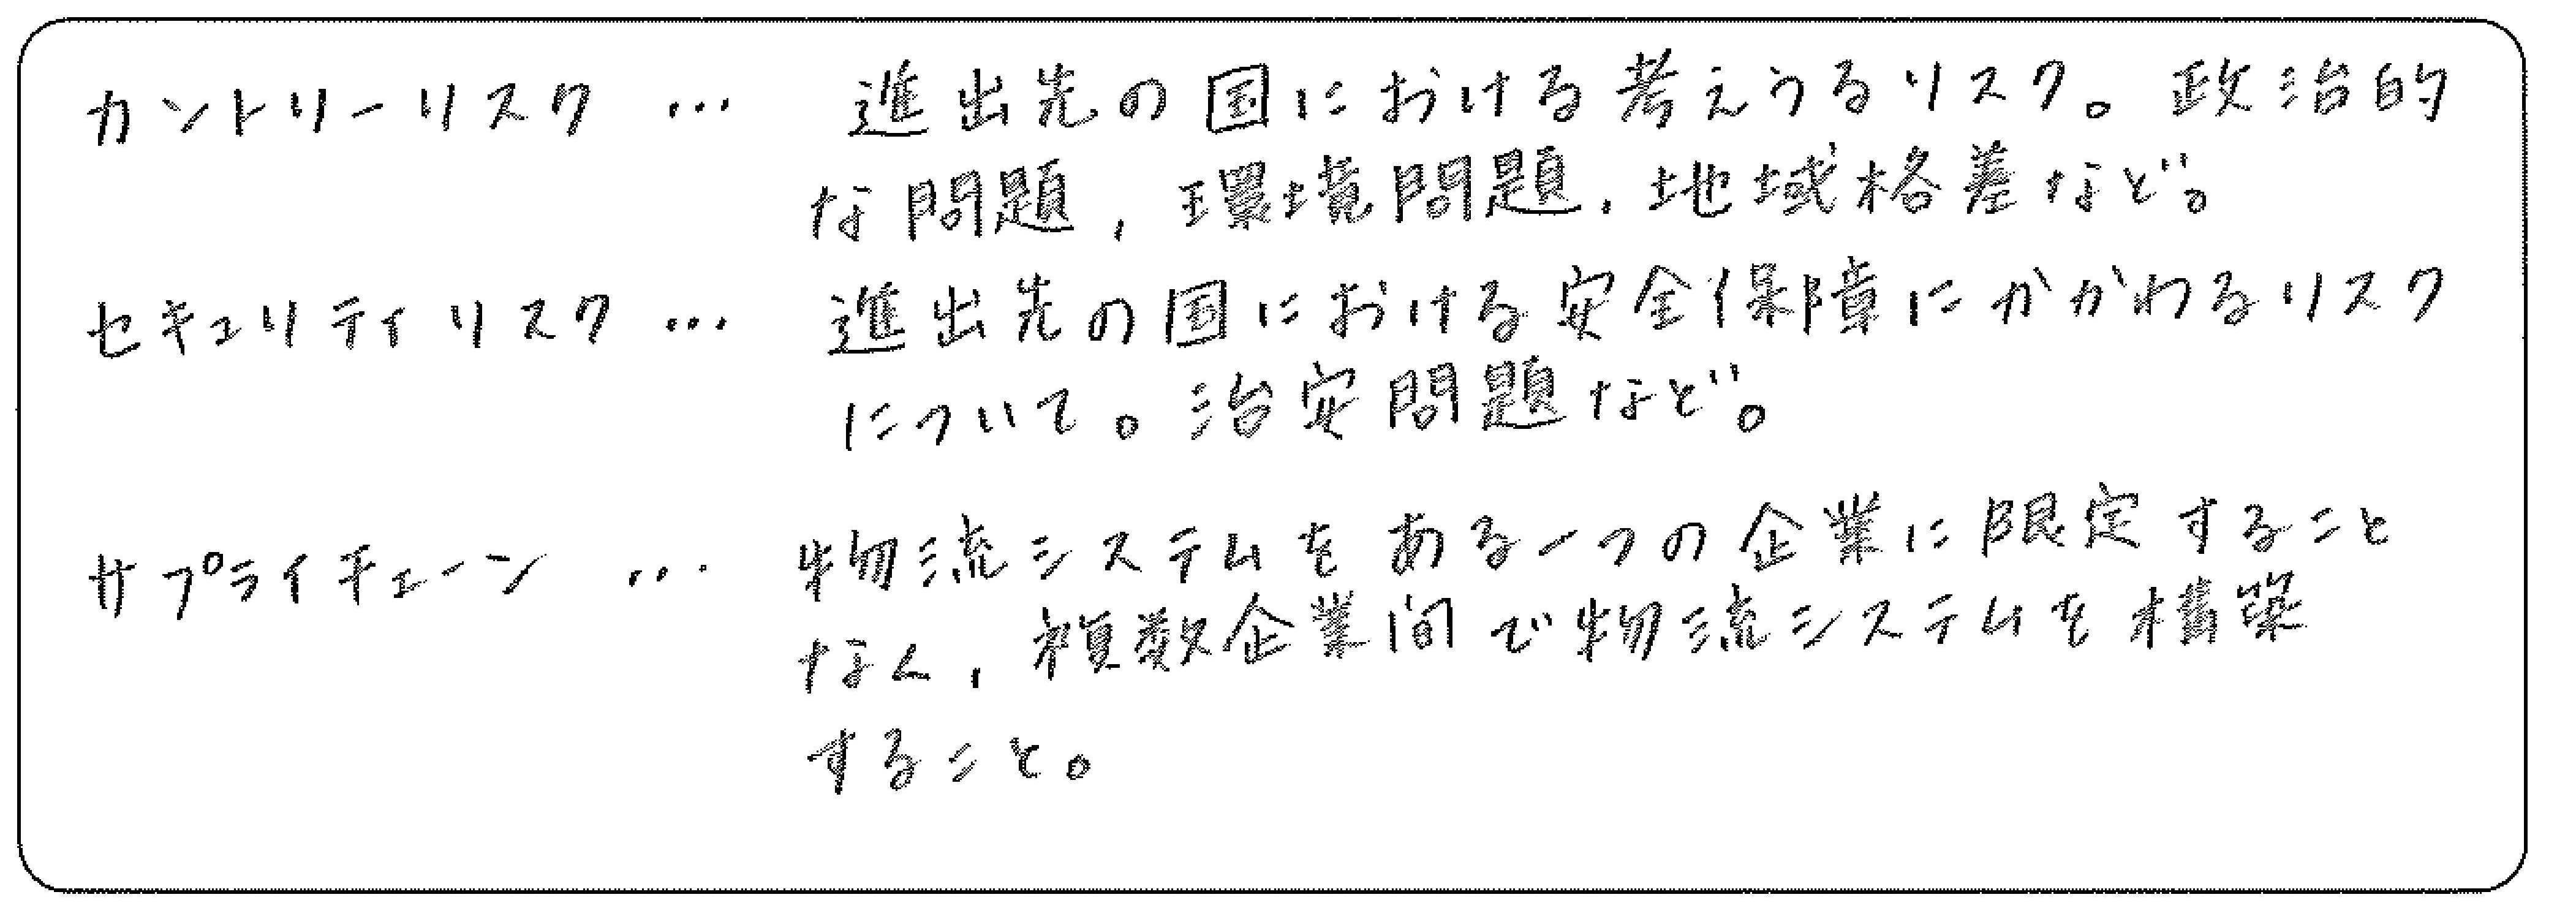 カントリーリスク … 進出先の国における考えうるリスク。政治的
な問題，環境問題，地域格差など。
セキュリティリスク … 進出先の国における安全保障にかかわるリスク
について。治安問題など。
サプライチェーン … 物流システムをある一つの企業に限定すること
なく，複数企業間で物流システムを構築
すること。